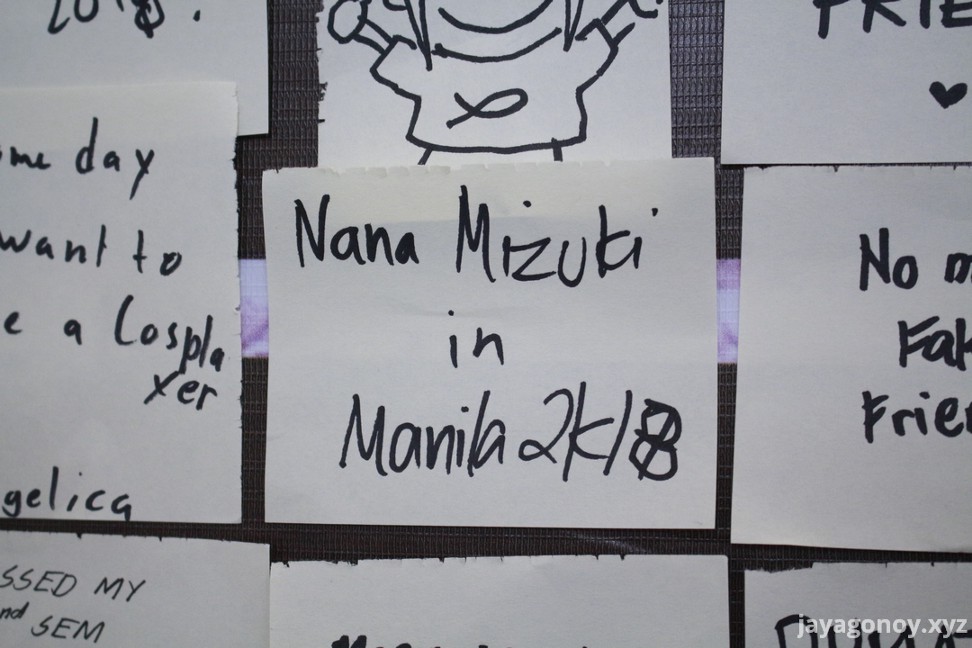 2018.
FRIE
me day
want to
e a Cospla
yer
gelica
Nana Mizuki
in
Manila 2k18
No m
Fak
Frien
SSED MY
nd SEM
jayagonoy.xyz